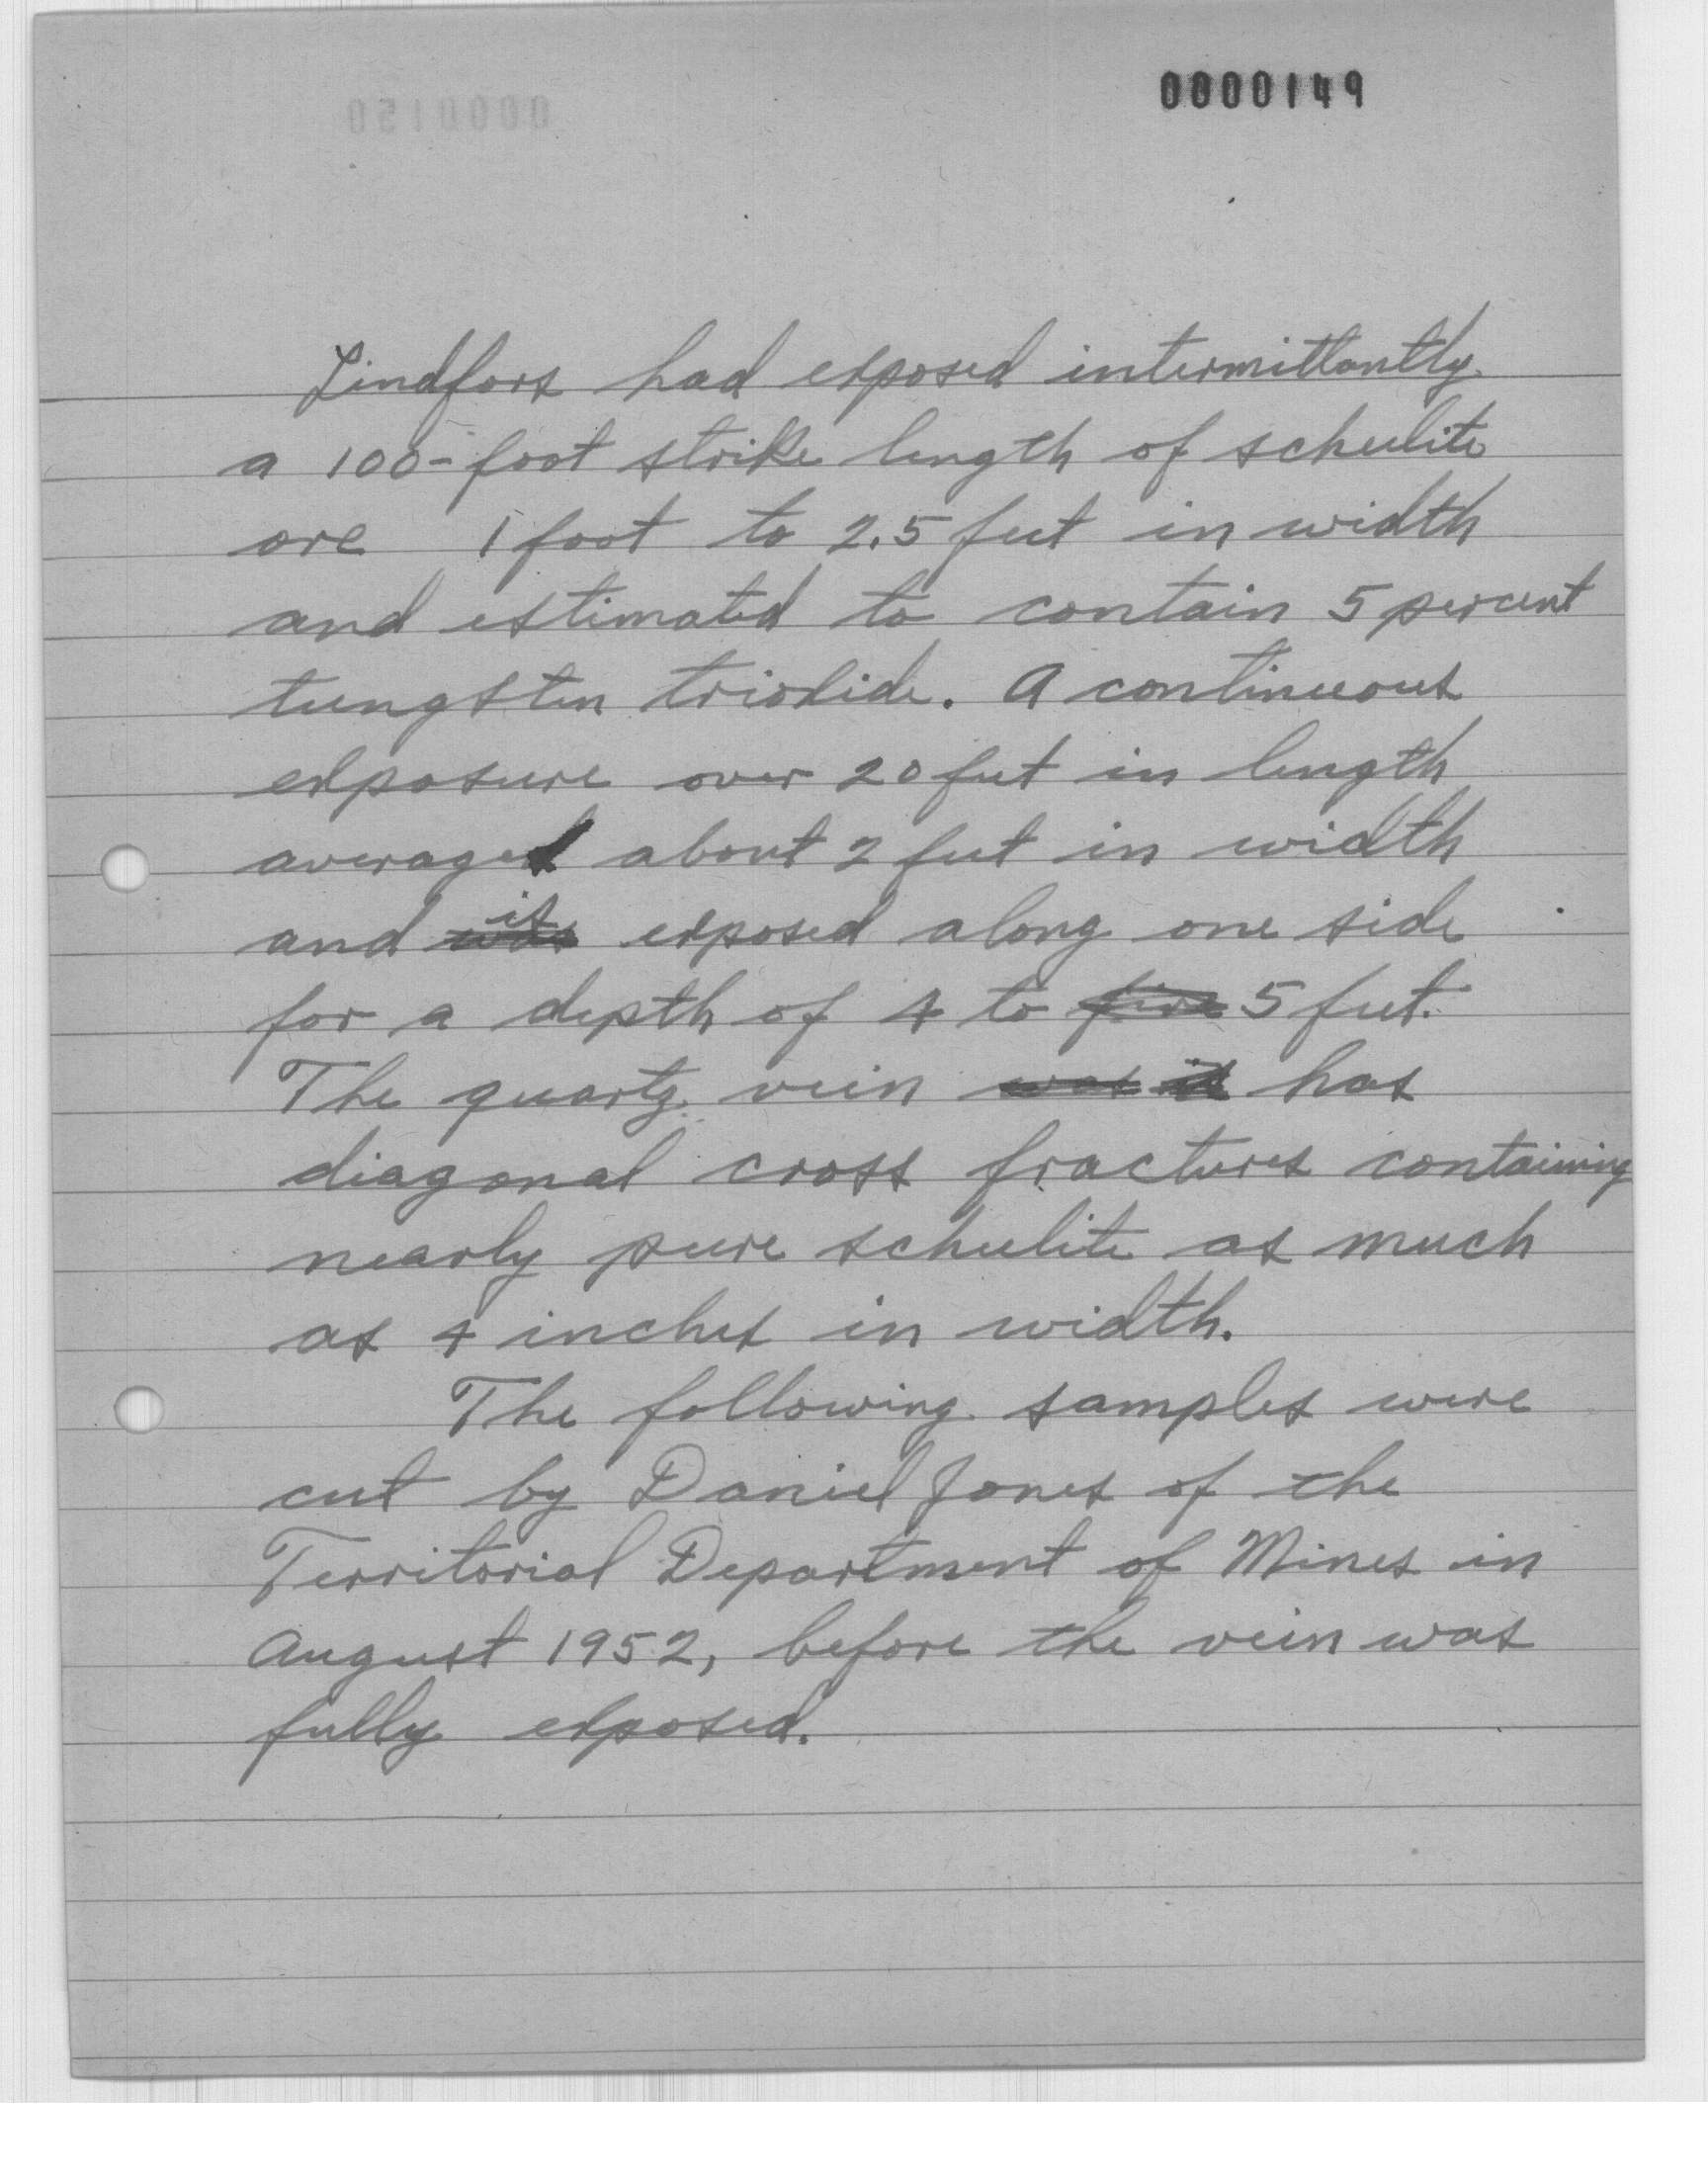 0000149
0000150
Lindfors had exposed intermittantly
a 100-foot strike length of scheelite
ore 1 foot to 2.5 feet in width
and estimated to contain 5 percent
tungsten trioxide. A continuous
exposure over 20 feet in length
averages about 2 feet in width
and was is exposed along one side
for a depth of 4 to five 5 feet.
The quartz vein was is has
diagonal cross fractures containing
nearly pure scheelite as much
as 4 inches in width.
The following samples were
cut by Daniel Jones of the
Territorial Department of Mines in
August 1952, before the vein was
fully exposed.